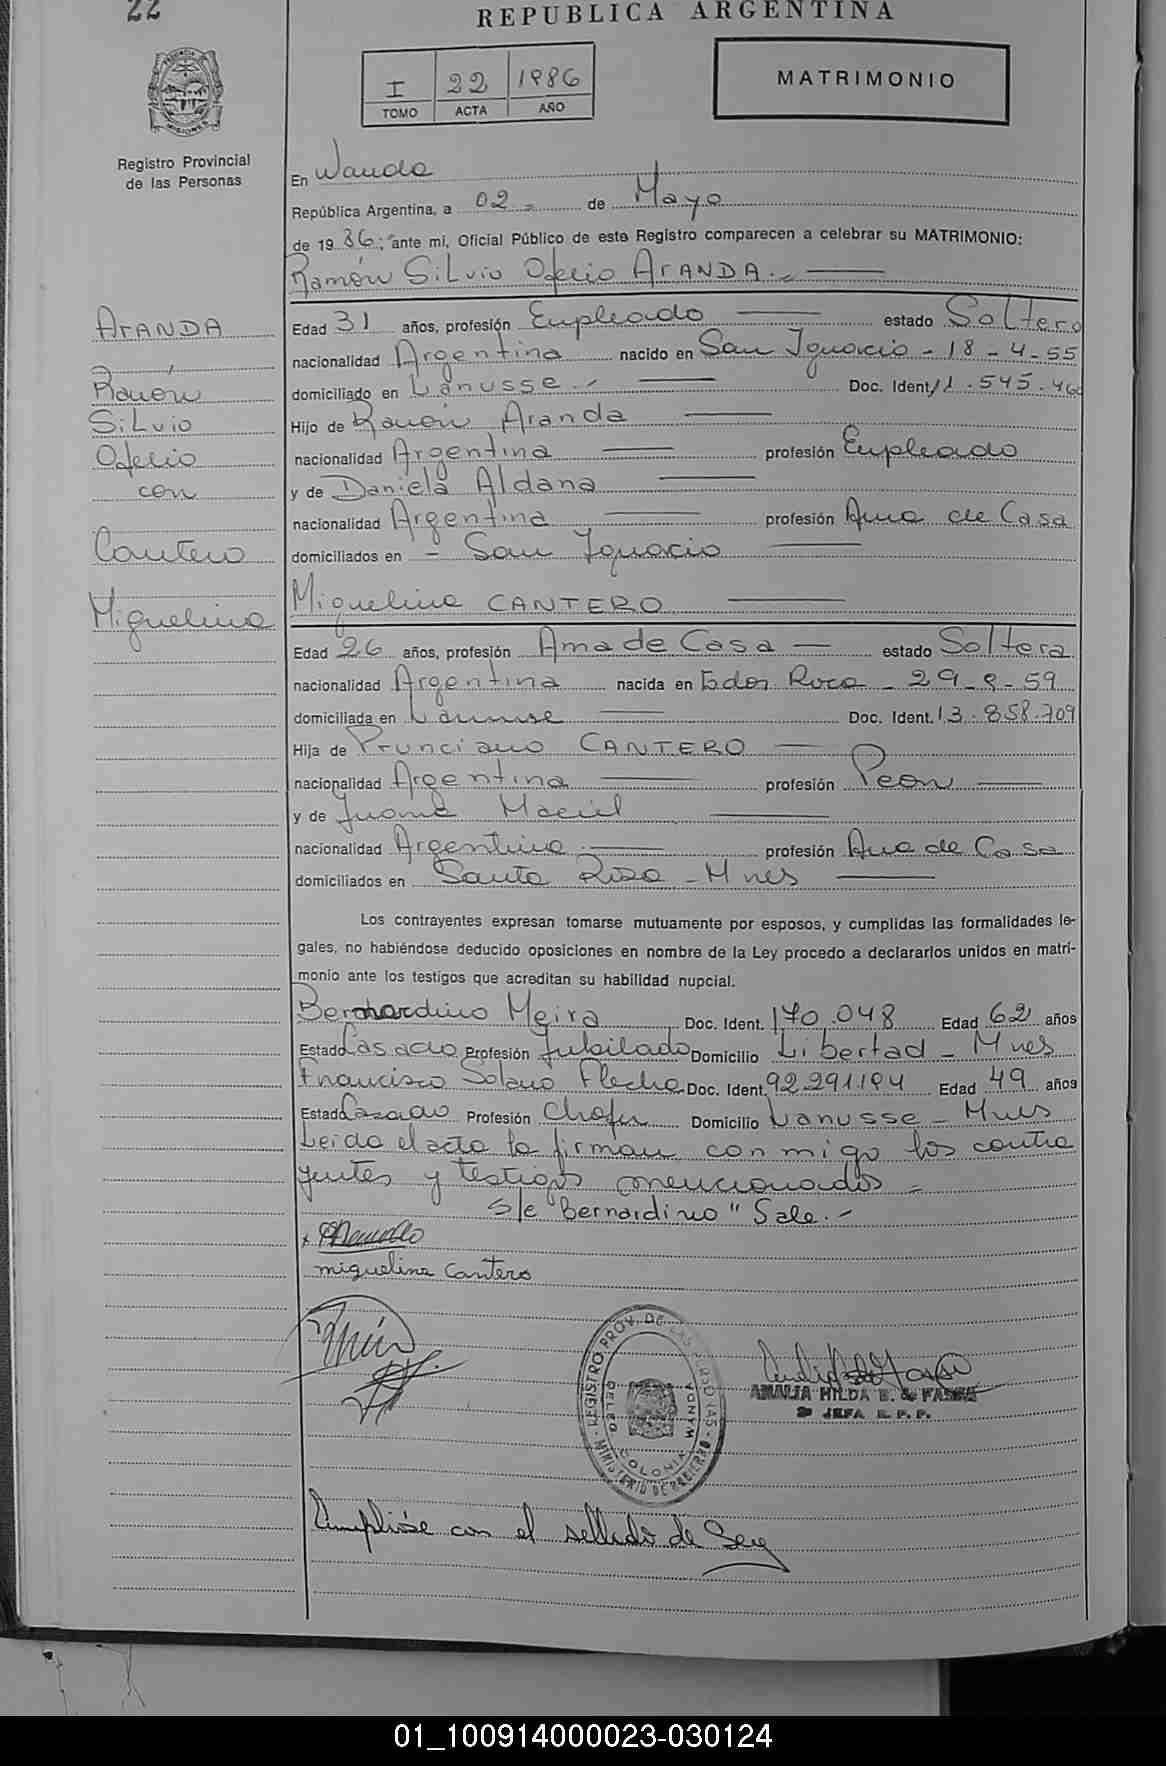 22
REPUBLICA ARGENTINA
I 22 1986
TOMO ACTA AÑO
MATRIMONIO
PROVINCIA MISIONES
Registro Provincial
de las Personas
En Wanda
República Argentina, a 02 - de Mayo
de 19 86; ante mi, Oficial Público de este Registro comparecen a celebrar su MATRIMONIO:
Ramón Silvio Ofelio ARANDA.-
Edad 31 años, profesión Empleado estado Soltero
nacionalidad Argentina nacido en San Ignacio - 18 - 4 - 55
domiciliado en Lanusse.- Doc. Ident. 11.545.
Hijo de Ramón Aranda
nacionalidad Argentina profesión Empleado
y de Daniela Aldana
nacionalidad Argentina profesión Ama de Casa
domiciliados en - San Ignacio
Miguelina CANTERO
ARANDA
Ramón
Silvio
Ofelio
con
Cantero
Miguelina
Edad 26 años, profesión Ama de Casa - estado Soltera
nacionalidad Argentina nacida en Roca - 29 - 59
domiciliada en Lanusse Doc. Ident. 13.858.709
Hija de Prunciano CANTERO
nacionalidad Argentina profesión Peon
y de Juana Maciel
nacionalidad Argentina profesión Ama de Casa
domiciliados en Santa Rosa - Mnes
Los contrayentes expresan tomarse mutuamente por esposos, y cumplidas las formalidades le-
gales, no habiéndose deducido oposiciones en nombre de la Ley procedo a declararlos unidos en matri-
monio ante los testigos que acreditan su habilidad nupcial.
Bernardino Meira Doc. Ident. 170.048 Edad 62 años
Estado Casado Profesión Jubilado Domicilio Libertad - Mnes
Francisco Solano Flecha Doc. Ident. 92.291.194 Edad 49 años
Estado Casado Profesión Chofer Domicilio Lanusse - Mnes
Leida el acta la firman con migo los contra
yentes y testigos mencionados -
S/e "Bernardino" Sale.-
miguelina Cantero
REGISTRO PROV. DE LAS PERSONAS
MINISTERIO DE GOBIERNO
DELEG. COLONIA WANDA
AMALIA HILDA E. de
JEFA R. P. P.
Cumplióse con el sellado de Ley
01_100914000023-030124